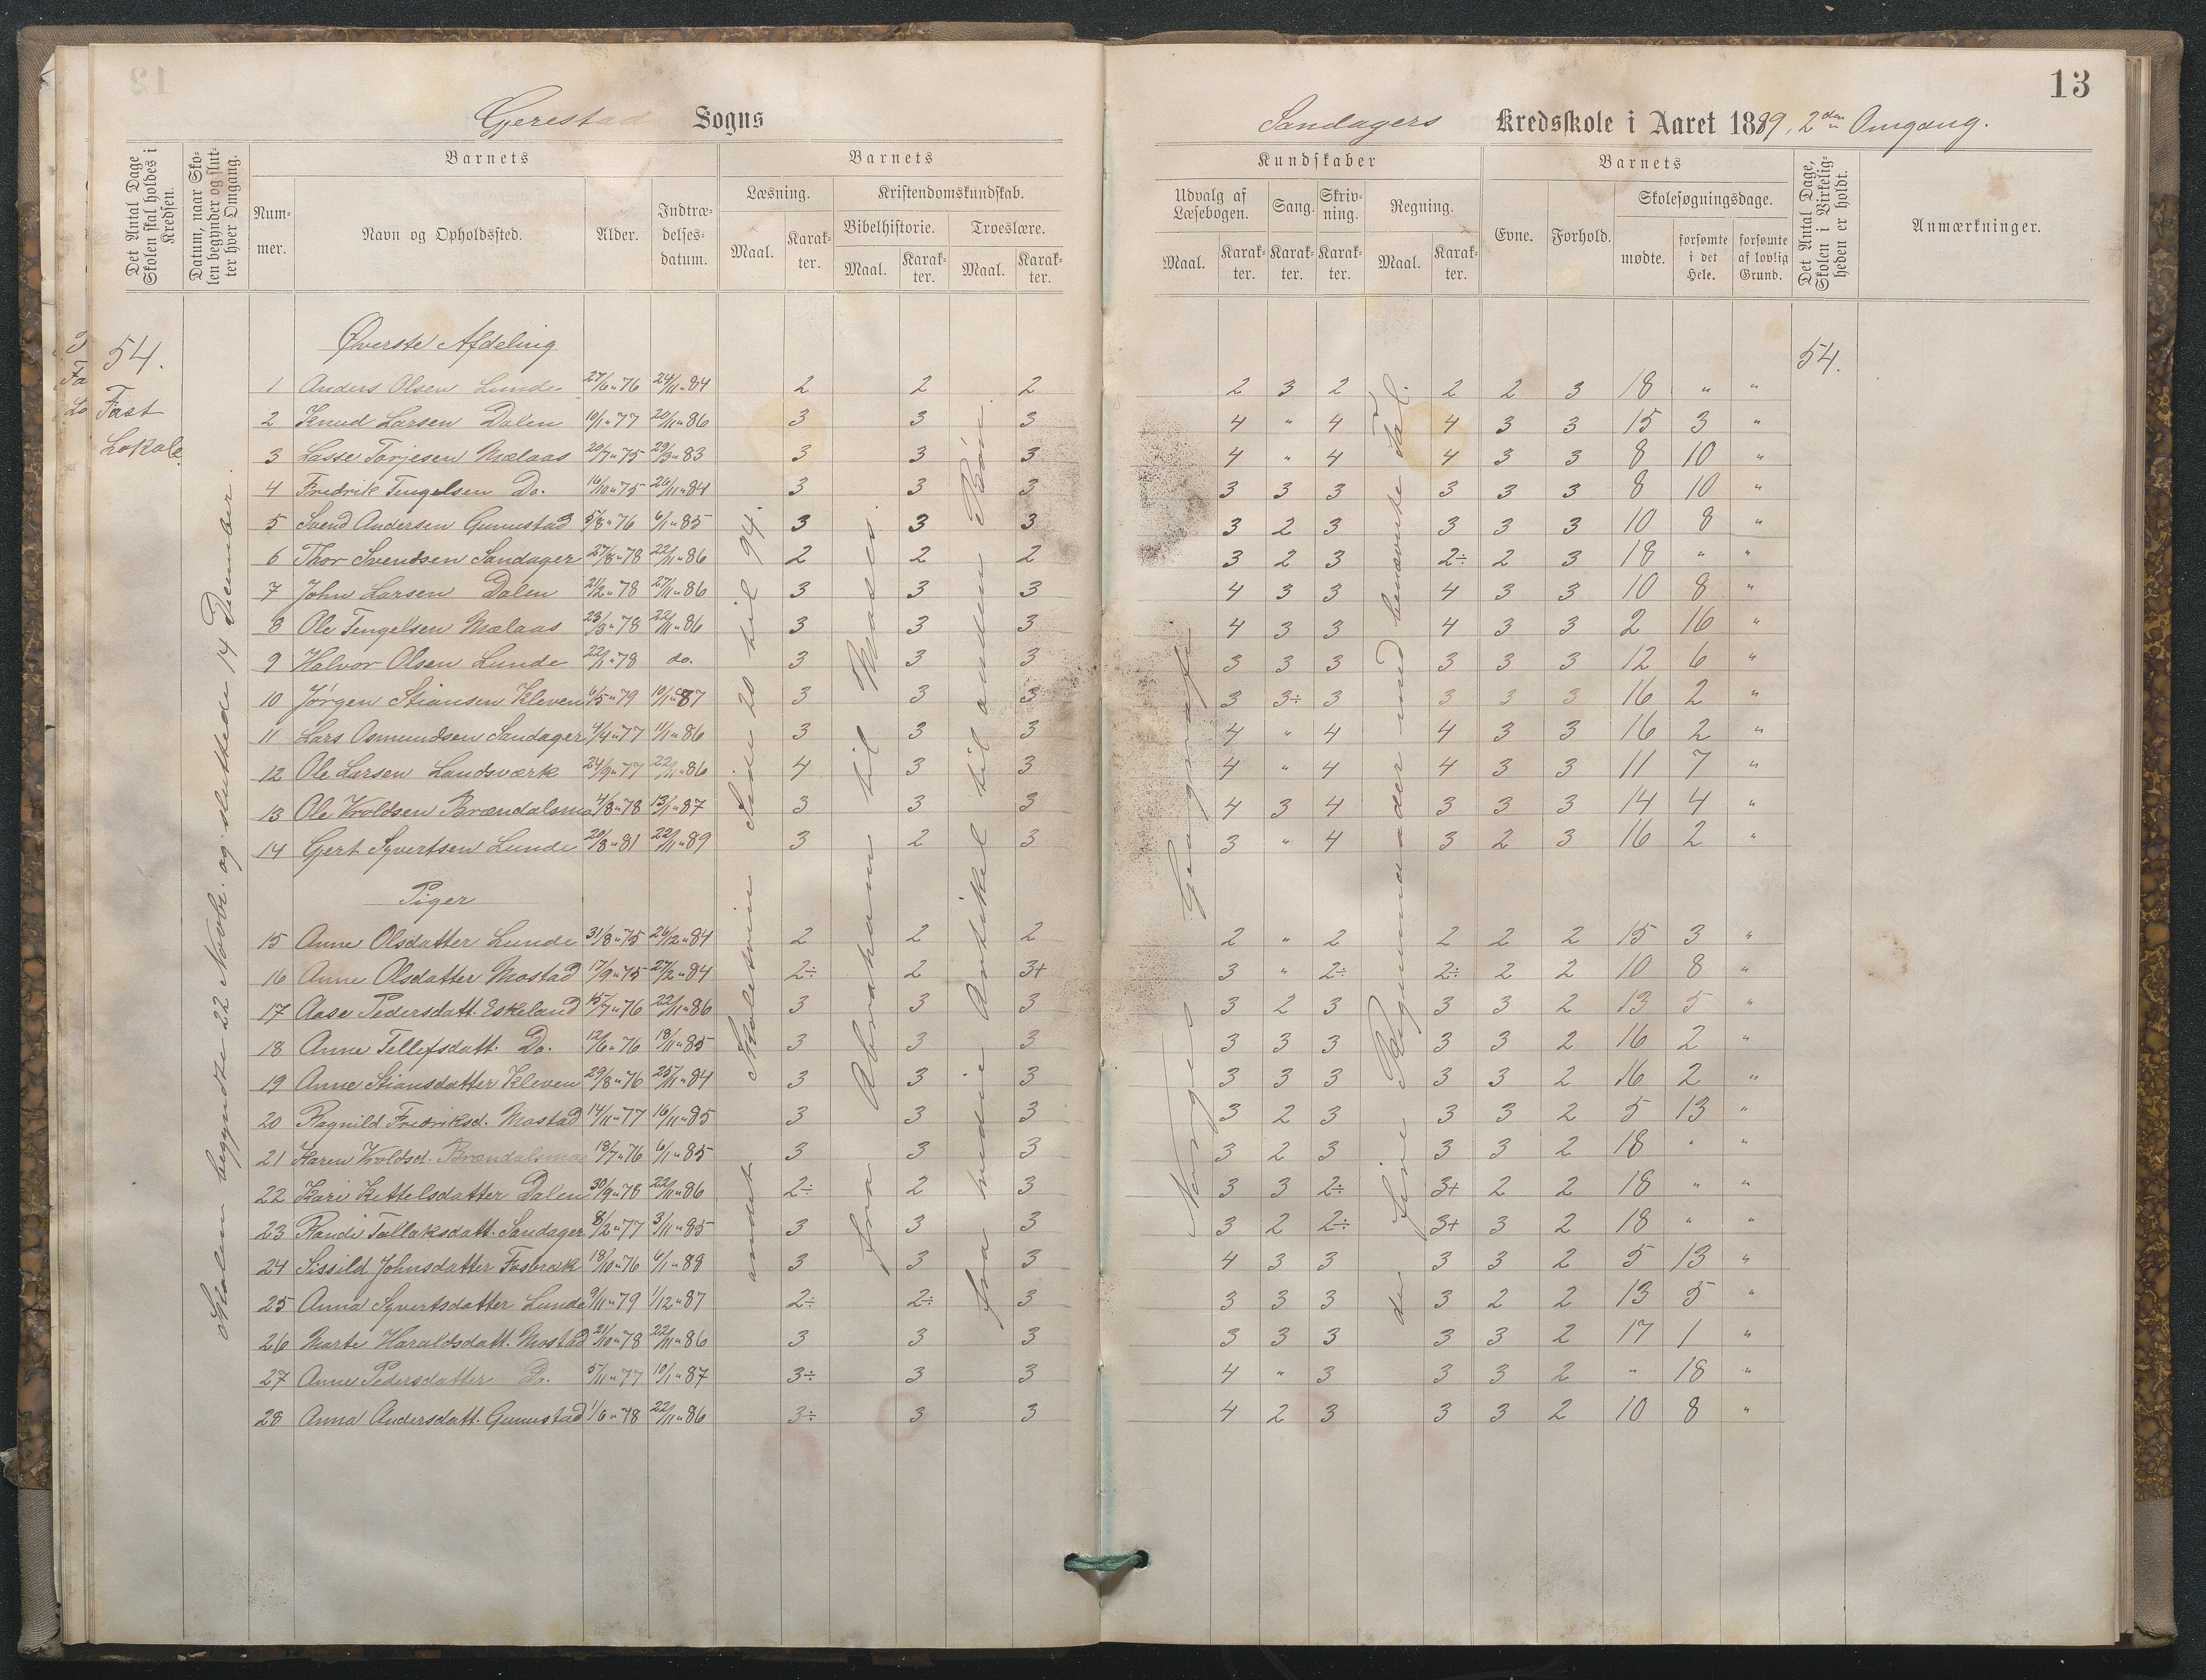 13
Gjerestad Sogns
Sandagers Kredsskole i Aaret 1889, 2den Omgang.
Det Antal Dage Skolen skal holdes i Kredsen.
Datum, naar Skolen begynder og slutter hver Omgang.
Barnets
Nummer.
Navn og Opholdssted.
Alder.
Indtrædelsesdatum.
Barnets
Læsning.
Maal.
Karakter.
Kristendomskundskab.
Bibelhistorie.
Maal.
Karakter.
Troeslære.
Maal.
Karakter.
Kundskaber
Udvalg af Læsebogen.
Maal.
Karakter.
Sang.
Karakter.
Skrivning.
Karakter.
Regning.
Maal.
Karakter.
Barnets
Evne.
Forhold.
Skolesøgningsdage.
mødte.
forsømte i det Hele.
forsømte af lovlig Grund.
Det Antal Dage, Skolen i Virkeligheden er holdt.
Anmærkninger.
54.
Fast
Lokale.
Skolen begyndte 22 Novbr. og sluttede 14 December.
andet Skoletrin Side 20 til 94.
fra Abraham til Moses.
fra tredie Artikel til anden Bøn.
Norges Geografi.
de fire Regnemaader med benævnte Tal.
54.
Øverste Afdeling
1 Anders Olsen Lunde 27/6"76 24/11"84 2 2 2 2 3 2 2 2 3 18 " "
2 Knud Larsen Dalen 10/1"77 20/11"86 3 3 3 4 " 4 4 3 3 15 3 "
3 Lasse Tarjesen Mælaas 20/7"75 29/3"83 3 3 3 4 " 4 4 3 3 8 10 "
4 Fredrik Tengelsen Do. 16/10"75 26/11"84 3 3 3 3 3 3 3 3 3 8 10 "
5 Svend Andersen Gunustad 5/8"76 6/1"85 3 3 3 3 2 3 3 3 3 10 8 "
6 Thor Svendsen Sandager 27/8"78 22/11"86 2 2 2 3 2 3 2÷ 2 3 18 " "
7 John Larsen Dalen 21/2"78 27/11"86 3 3 3 4 3 3 4 3 3 10 8 "
8 Ole Tengelsen Mælaas 23/3"78 22/11"86 3 3 3 4 3 3 4 3 3 2 16 "
9 Halvor Olsen Lunde 22/1"78 do. 3 3 3 3 3 3 3 3 3 12 6 "
10 Jørgen Stiansen Kleven 6/5"79 10/1"87 3 3 3 3 3÷ 3 3 3 3 16 2 "
11 Lars Osmundsen Sandager 4/4"77 11/1"86 3 3 3 4 " 4 4 3 3 16 2 "
12 Ole Larsen Landsværk 24/9"77 22/11"86 4 3 3 4 " 4 4 3 3 11 7 "
13 Ole Kroldsen Brændalsmo 4/8"78 13/1"87 3 3 3 4 3 4 3 3 3 14 4 "
14 Gjert Syvertsen Lunde 20/8"81 22/11"89 3 2 3 3 " 4 3 2 3 16 2 "
Piger
15 Anne Olsdatter Lunde 31/8"75 26/2"84 2 2 2 2 " 2 2 2 2 15 3 "
16 Anne Olsdatter Mostad 17/9"75 27/2"84 2÷ 2 3+ 3 " 2÷ 2÷ 2 2 10 8 "
17 Aase Pedersdatt. Eskeland 15/7"76 22/11"86 3 3 3 3 2 3 3 3 2 13 5 "
18 Anne Tellefsdatt. Do. 12/6"76 18/11"85 3 3 3 3 3 3 3 3 2 16 2 "
19 Anne Stiansdatter Kleven 29/8"76 25/11"84 3 3 3 3 3 3 3 3 2 16 2 "
20 Ragnild Fredriksd. Mostad 14/11"77 16/11"85 3 3 3 3 2 3 3 3 2 5 13 "
21 Karen Kroldsd. Brændalsmo 18/7"76 6/1"85 3 3 3 3 2 3 3 3 2 18 " "
22 Kari Kettelsdatter Dalen 30/9"78 22/11"86 2÷ 2 3 3 3 2÷ 3+ 2 2 18 " "
23 Randi Tallaksdatt. Sandager 8/2"77 3/11"85 3 3 3 3 2 2÷ 3+ 3 2 18 " "
24 Sissild Johnsdatter Fosbræk 18/10"76 4/1"88 3 3 3 4 3 3 3 3 2 5 13 "
25 Anna Syvertsdatter Lunde 9/11"79 1/12"87 2÷ 2÷ 3 3 3 3 3 2 2 13 5 "
26 Marte Haraldsdatt. Mostad 21/10"78 22/11"86 3 3 3 3 3 3 3 3 2 17 1 "
27 Anne Pedersdatter Do. 5/11"77 10/1"87 3÷ 3 3 4 " 3 3 3 2 " 18 "
28 Anna Andersdatt. Gunustad 1/6"78 22/11"86 3÷ 3 3 4 2 3 3 3 2 10 8 "